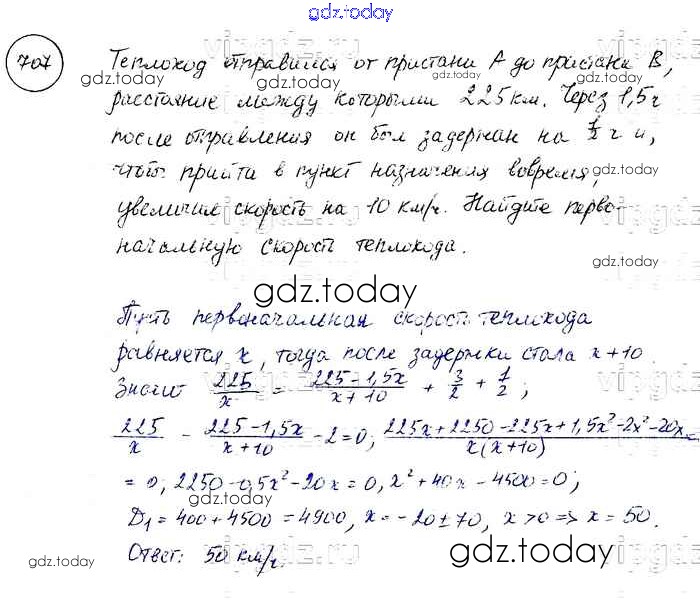 gdz.today
707
Теплоход отправился от пристани А до пристани В,
расстояние между которыми 225 км. Через 1,5 ч
после отправления он был задержан на 1/2 ч и,
чтобы прийти в пункт назначения вовремя,
увеличил скорость на 10 км/ч. Найдите перво-
начальную скорость теплохода.
gdz.today
Пусть первоначальная скорость теплохода
равняется x, тогда после задержки стала x+10.
Значит 225/x = (225-1,5x)/(x+10) + 3/2 + 1/2;
225/x - (225-1,5x)/(x+10) - 2=0, (225x+2250-225x+1,5x²-2x²-20x)/(x(x+10)) =
= 0, 2250-0,5x²-20x=0, x²+40x-4500=0;
D₁=400+4500=4900, x=-20±70, x>0 => x=50.
Ответ: 50 км/ч.
gdz.today